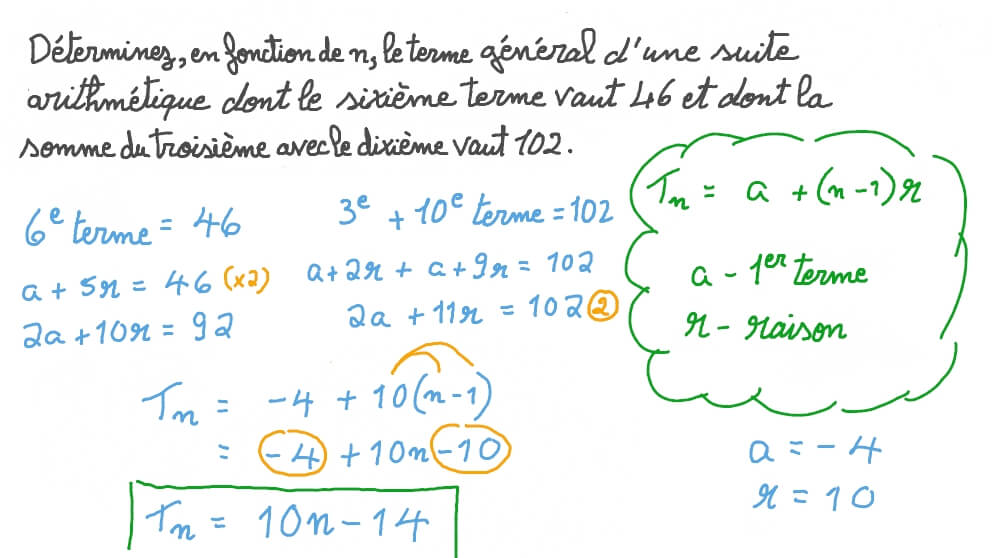 Déterminez, en fonction de n, le terme général d'une suite
arithmétique dont le sixième terme vaut 46 et dont la
somme du troisième avec le dixième vaut 102.
6e terme = 46
a + 5r = 46 (x2)
2a + 10r = 92
3e + 10e terme = 102
a + 2r + a + 9r = 102
2a + 11r = 102 2
Tn = a + (n-1)r
a - 1er terme
r - raison
Tn = -4 + 10(n-1)
= -4 + 10n -10
Tn = 10n - 14
a = -4
r = 10